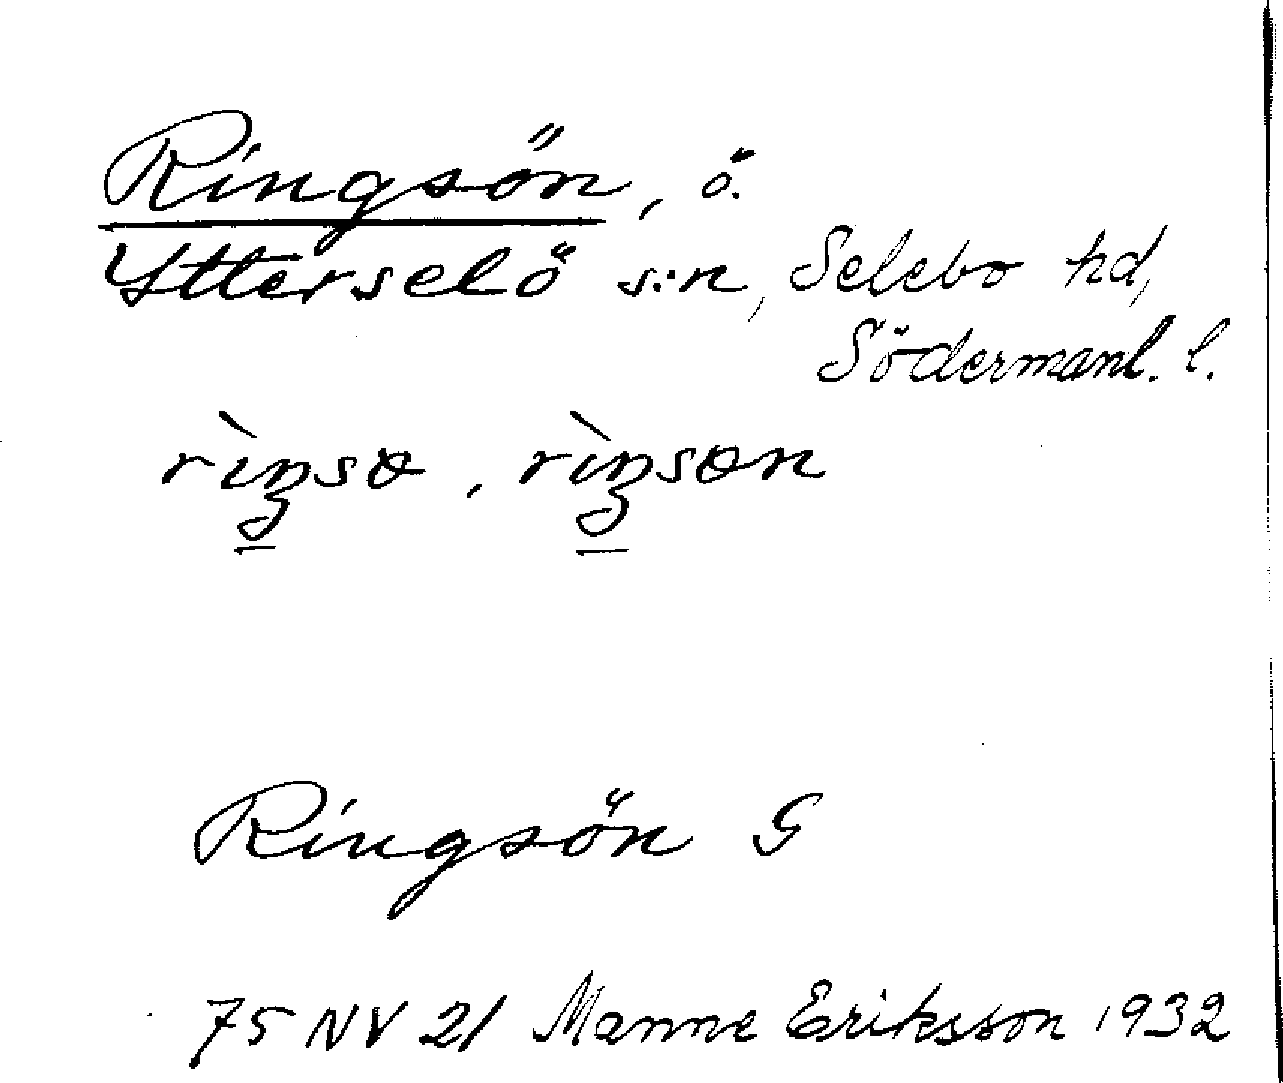 Ringsön, ö.
Ytterselö s:n, Selebo hd,
Södermanl. l.
rìŋsø, rìŋsøn
Ringsön G
75 NV 21 Manne Eriksson 1932